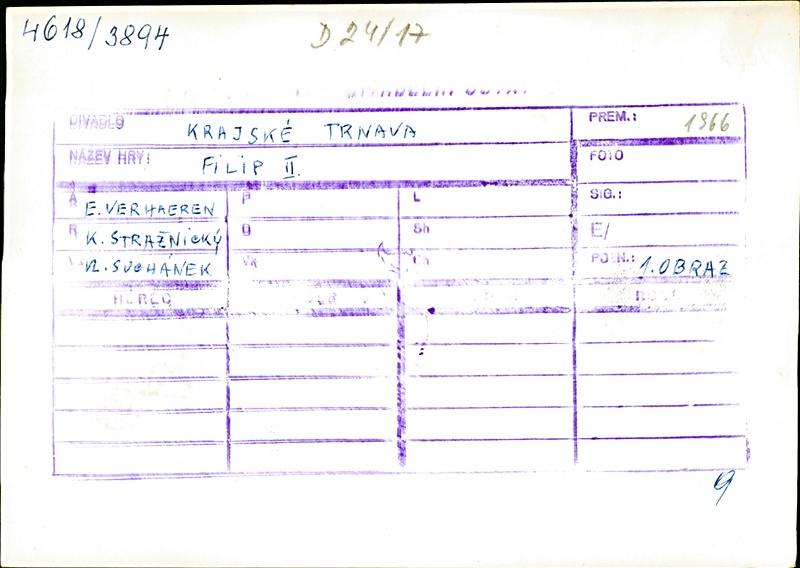 4618/3894 D 24/17
DIVADLO KRAJSKÉ TRNAVA PREM.: 1966
NÁZEV HRY: FILIP II. FOTO
A E. VERHAEREN P L SIG.:
R K. STRAŽNICKÝ Sh E/
SUCHÁNEK POZN.: 1. OBRAZ
HEREC
9